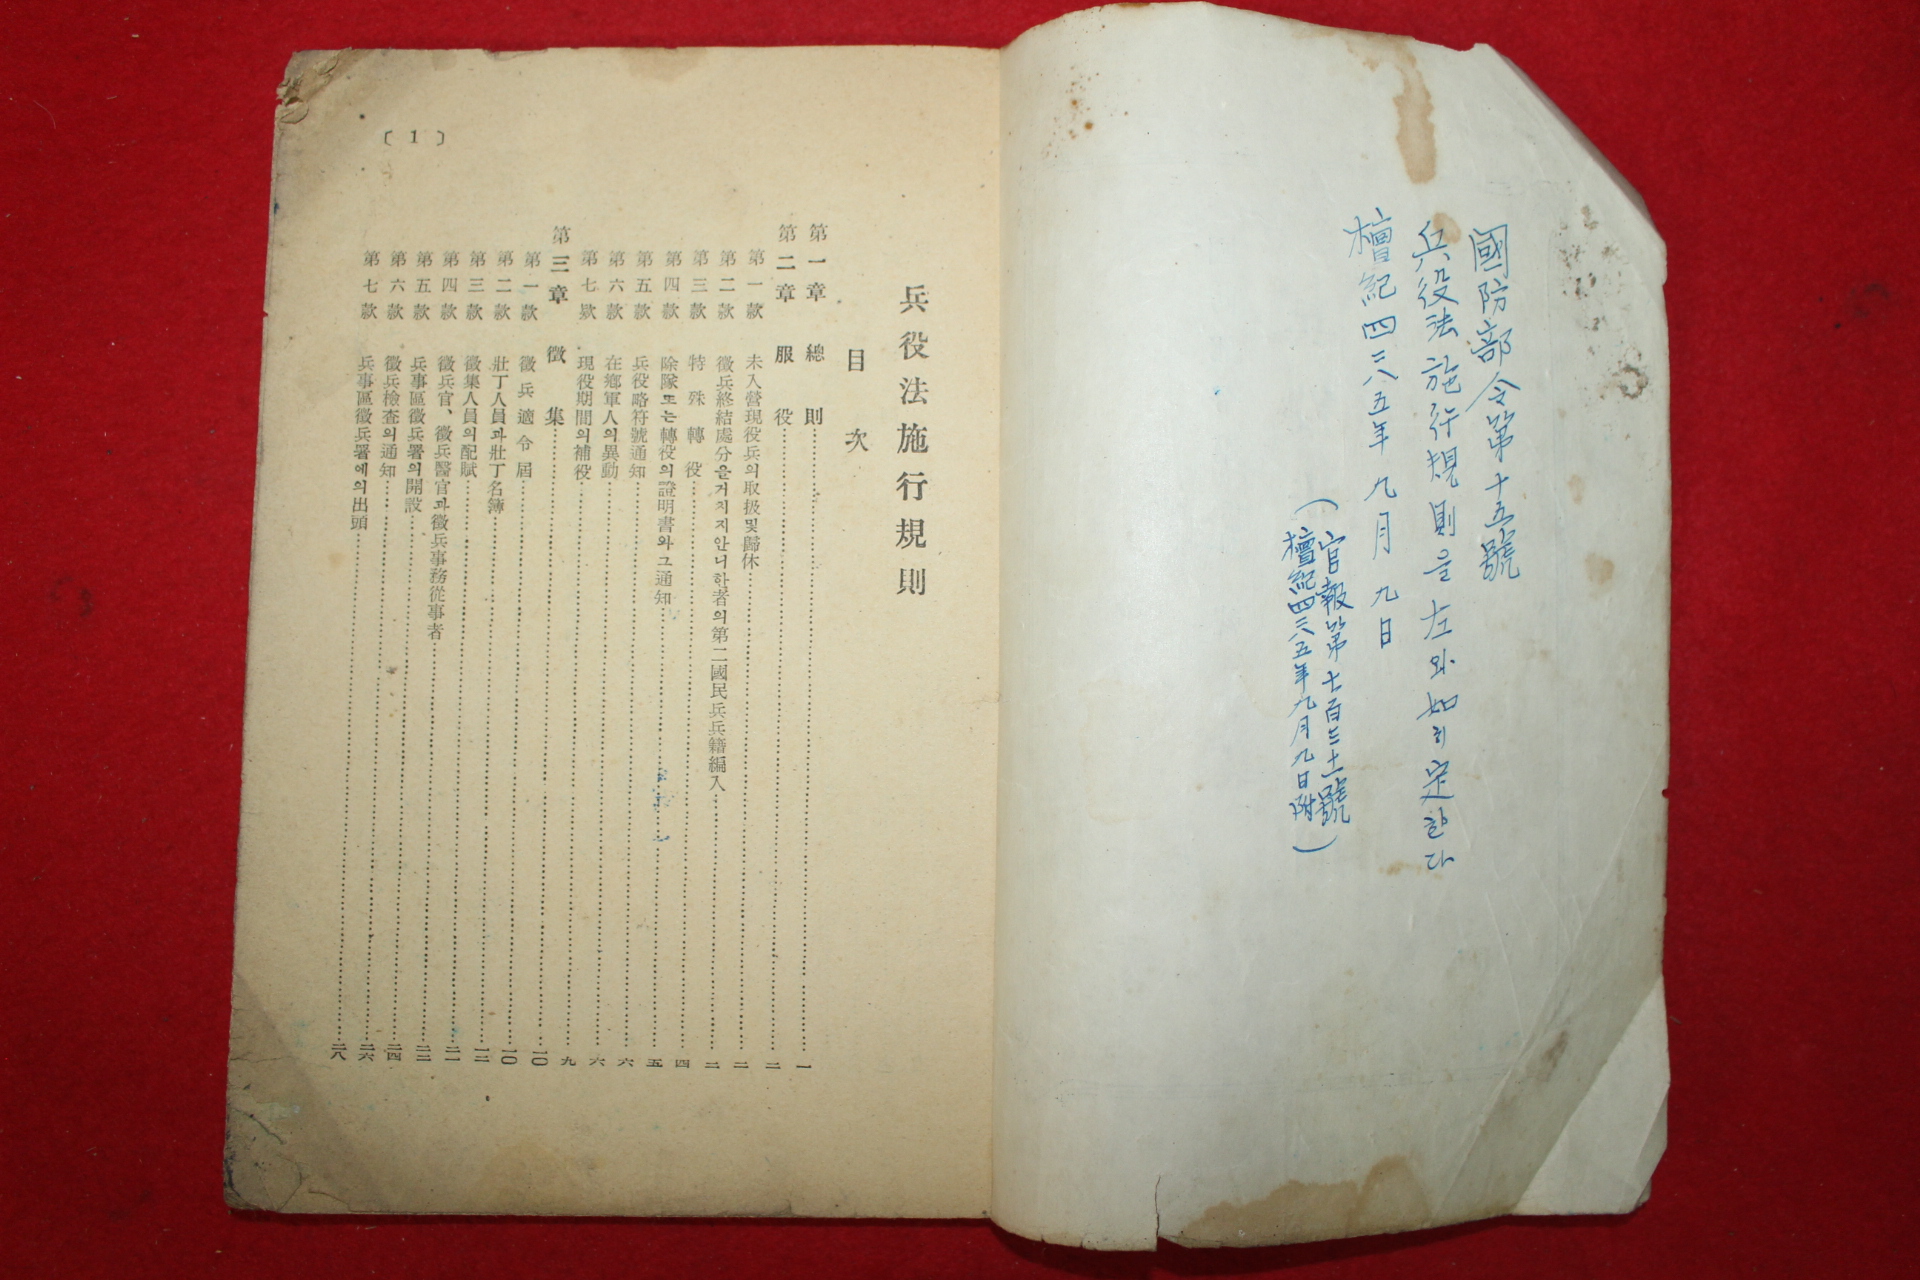 國防部令第十五號
兵役法施行規則을左와如히定한다
檀紀四二八五年九月九日
(官報第七百三十一號
檀紀四二八五年九月九日附)
兵役法施行規則
目次
第一章 總則 一
第二章 服役 二
第一款 未入營現役兵의取扱및歸休 二
第二款 徵兵終結處分을거치지안니한者의第二國民兵兵籍編入 二
第三款 特殊轉役 四
第四款 除隊또는轉役의證明書와그通知 五
第五款 兵役略符號通知 六
第六款 在鄕軍人의異動 六
第七款 現役期間의補役 九
第三章 徵集 一〇
第一款 徵兵適令屆 一〇
第二款 壯丁人員과壯丁名簿 一二
第三款 徵集人員의配賦 二一
第四款 徵兵官、徵兵醫官과徵兵事務從事者 二二
第五款 兵事區徵兵署의開設 二四
第六款 徵兵檢査의通知 二六
第七款 兵事區徵兵署에의出頭 二八
〔 1 〕